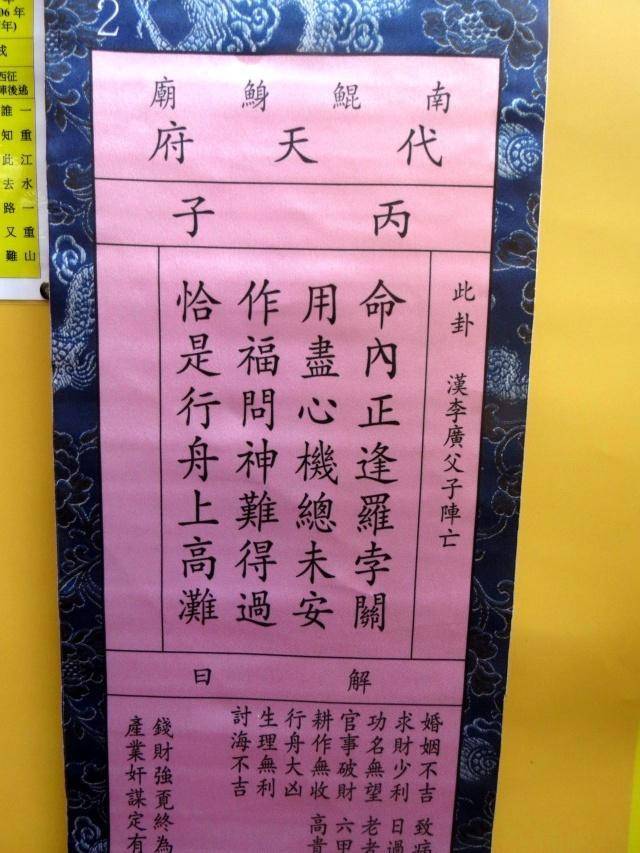 2
南鯤鯓廟
代天府
丙子
此卦 漢李廣父子陣亡
命內正逢羅孛關
用盡心機總未安
作福問神難得過
恰是行舟上高灘
解曰
婚姻不吉 致病
求財少利 日過
功名無望 老者
官事破財 六甲
耕作無收 高貴
行舟大凶
生理無利
討海不吉
錢財強覓終為
產業奸謀定有
06 年
年)
西征
陣後逃
一重江水一重山
誰知此去路又難